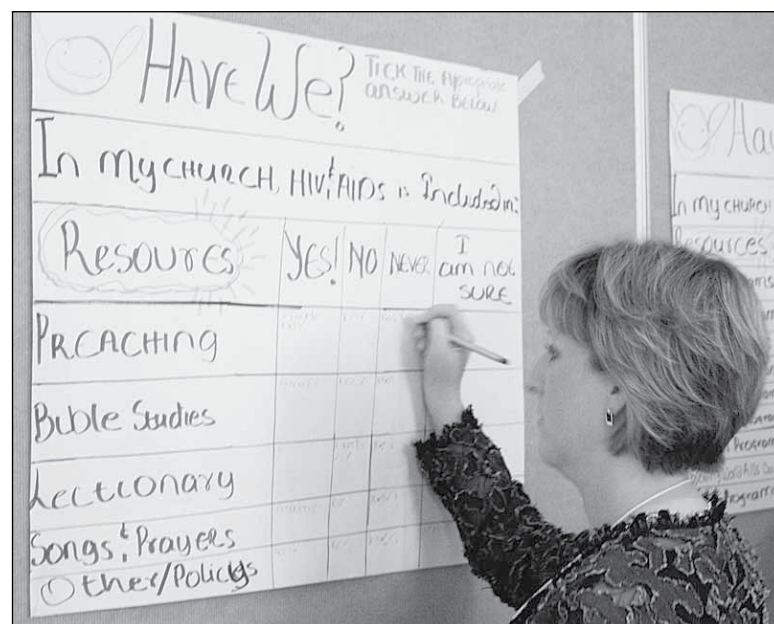 HAVE We?
TICK THE Appropriate
answer Below
In my CHURCH, HIV & AIDS is Included in:
Resoures
YES!
NO
NEVER
I
am not
SURE
PREACHING
Bible Studies
Lectionary
Songs & Prayers
Other/Policys
Hav
In my CHURCH
Resources
Program